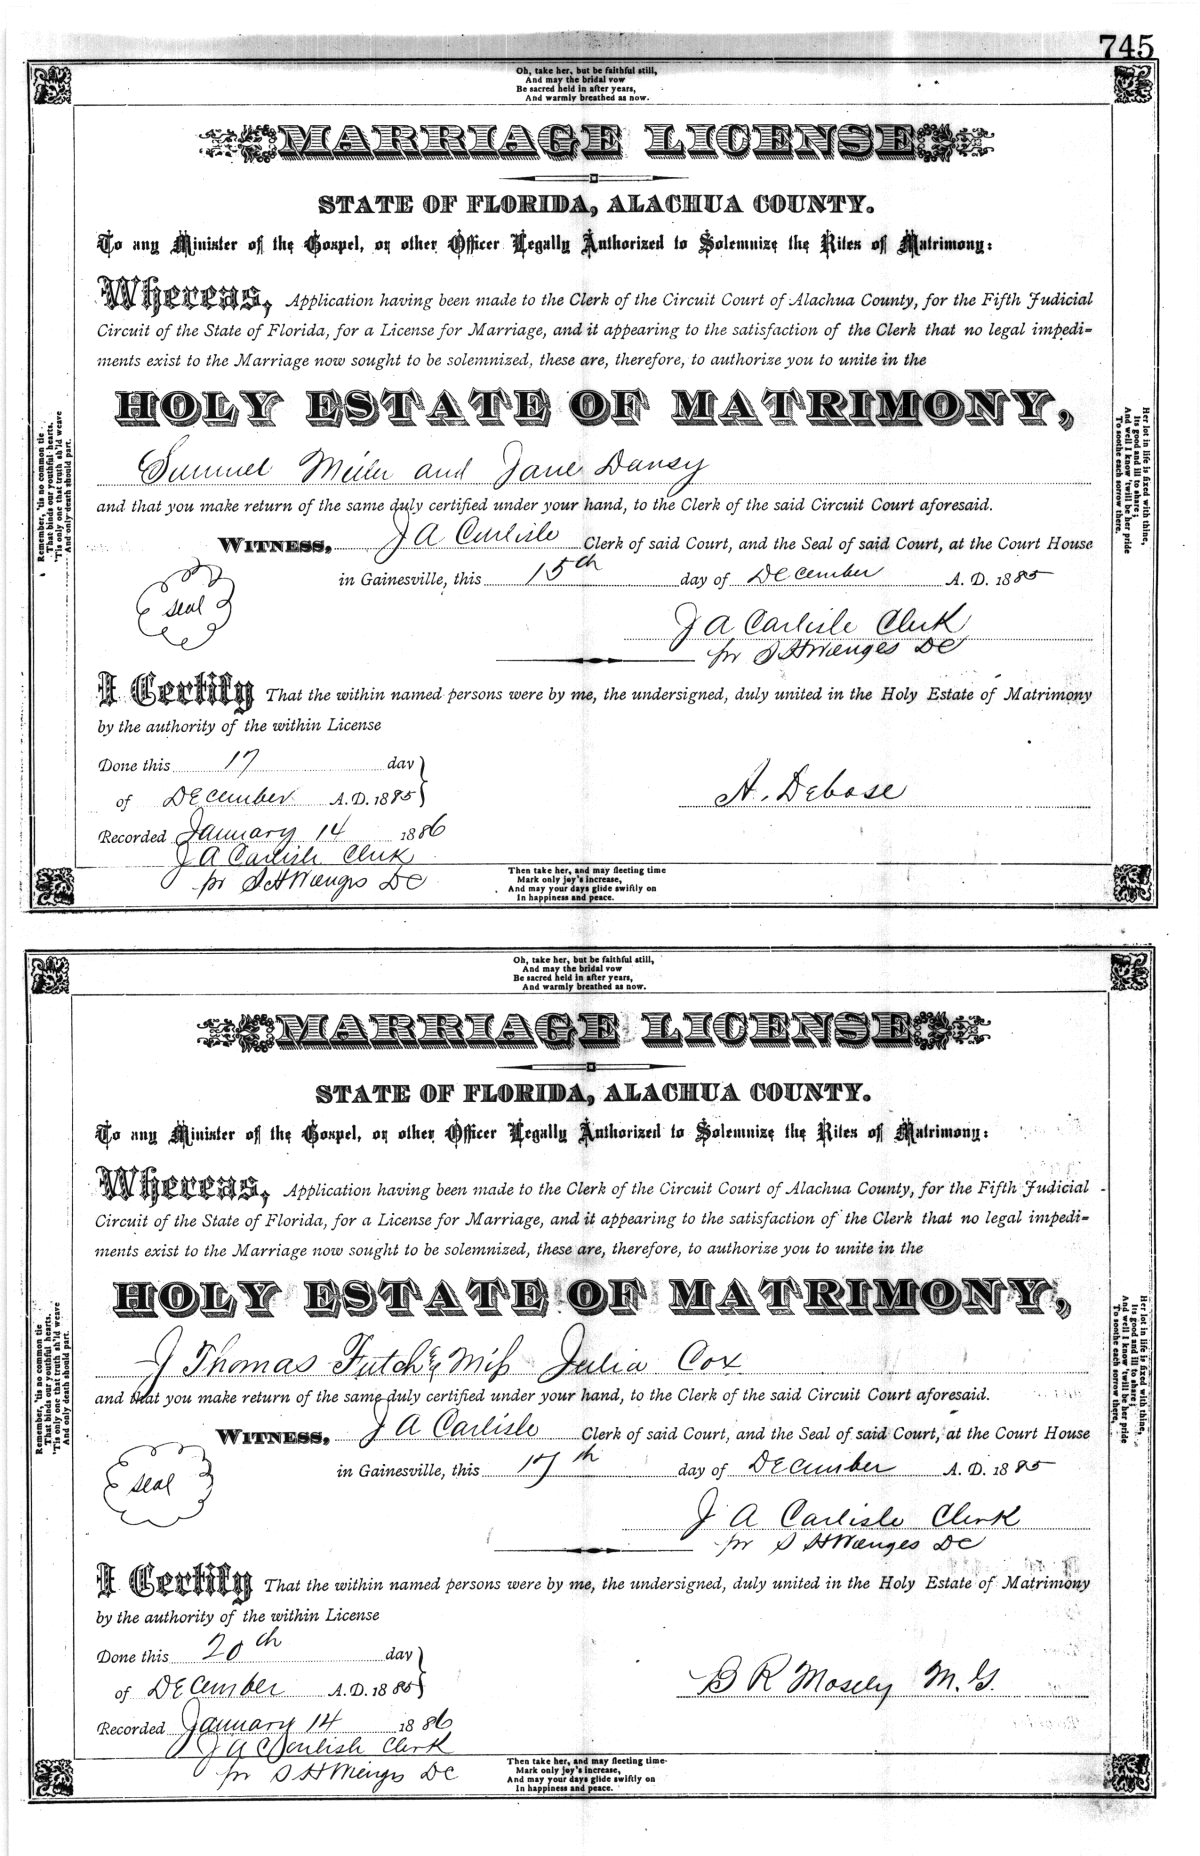 745
Oh, take her, but be faithful still,
And may the bridal vow
Be sacred held in after years,
And warmly breathed as now.
MARRIAGE LICENSE
STATE OF FLORIDA, ALACHUA COUNTY.
To any Minister of the Gospel, or other Officer Legally Authorized to Solemnize the Rites of Matrimony:
Whereas, Application having been made to the Clerk of the Circuit Court of Alachua County, for the Fifth Judicial
Circuit of the State of Florida, for a License for Marriage, and it appearing to the satisfaction of the Clerk that no legal impedi=
ments exist to the Marriage now sought to be solemnized, these are, therefore, to authorize you to unite in the
HOLY ESTATE OF MATRIMONY,
Samuel and Jane Dansy
and that you make return of the same duly certified under your hand, to the Clerk of the said Circuit Court aforesaid.
WITNESS, J A Carlisle Clerk of said Court, and the Seal of said Court, at the Court House
in Gainesville, this 15th day of December A. D. 1885
seal
J A Carlisle Clerk
pr S H Wienges DC
I Certify That the within named persons were by me, the undersigned, duly united in the Holy Estate of Matrimony
by the authority of the within License
Done this 17 day
of December A.D. 1885
A. Debose
Recorded January 14 1886
J A Carlisle Clerk
pr S H Wienges DC
Remember, 'tis no common tie
That binds our youthful hearts.
'Tis only one that truth sh'ld weave
And only death should part.
Her lot in life is fixed with thine,
Its good and ill to share;
And well I know 'twill be her pride
To soothe each sorrow there.
Then take her, and may fleeting time
Mark only joy's increase,
And may your days glide swiftly on
In happiness and peace.
Oh, take her, but be faithful still,
And may the bridal vow
Be sacred held in after years,
And warmly breathed as now.
MARRIAGE LICENSE
STATE OF FLORIDA, ALACHUA COUNTY.
To any Minister of the Gospel, or other Officer Legally Authorized to Solemnize the Rites of Matrimony:
Whereas, Application having been made to the Clerk of the Circuit Court of Alachua County, for the Fifth Judicial
Circuit of the State of Florida, for a License for Marriage, and it appearing to the satisfaction of the Clerk that no legal impedi=
ments exist to the Marriage now sought to be solemnized, these are, therefore, to authorize you to unite in the
HOLY ESTATE OF MATRIMONY,
J Thomas Futch & Miss Julia Cox
and that you make return of the same duly certified under your hand, to the Clerk of the said Circuit Court aforesaid.
WITNESS, J A Carlisle Clerk of said Court, and the Seal of said Court, at the Court House
in Gainesville, this 17th day of December A. D. 1885
seal
J A Carlisle Clerk
pr S H Wienges DC
I Certify That the within named persons were by me, the undersigned, duly united in the Holy Estate of Matrimony
by the authority of the within License
Done this 20th day
of December A.D. 1885
B R Mosely M.G.
Recorded January 14 1886
J A Carlisle Clerk
pr S H Wienges DC
Remember, 'tis no common tie
That binds our youthful hearts.
'Tis only one that truth sh'ld weave
And only death should part.
Her lot in life is fixed with thine,
Its good and ill to share;
And well I know 'twill be her pride
To soothe each sorrow there.
Then take her, and may fleeting time
Mark only joy's increase,
And may your days glide swiftly on
In happiness and peace.